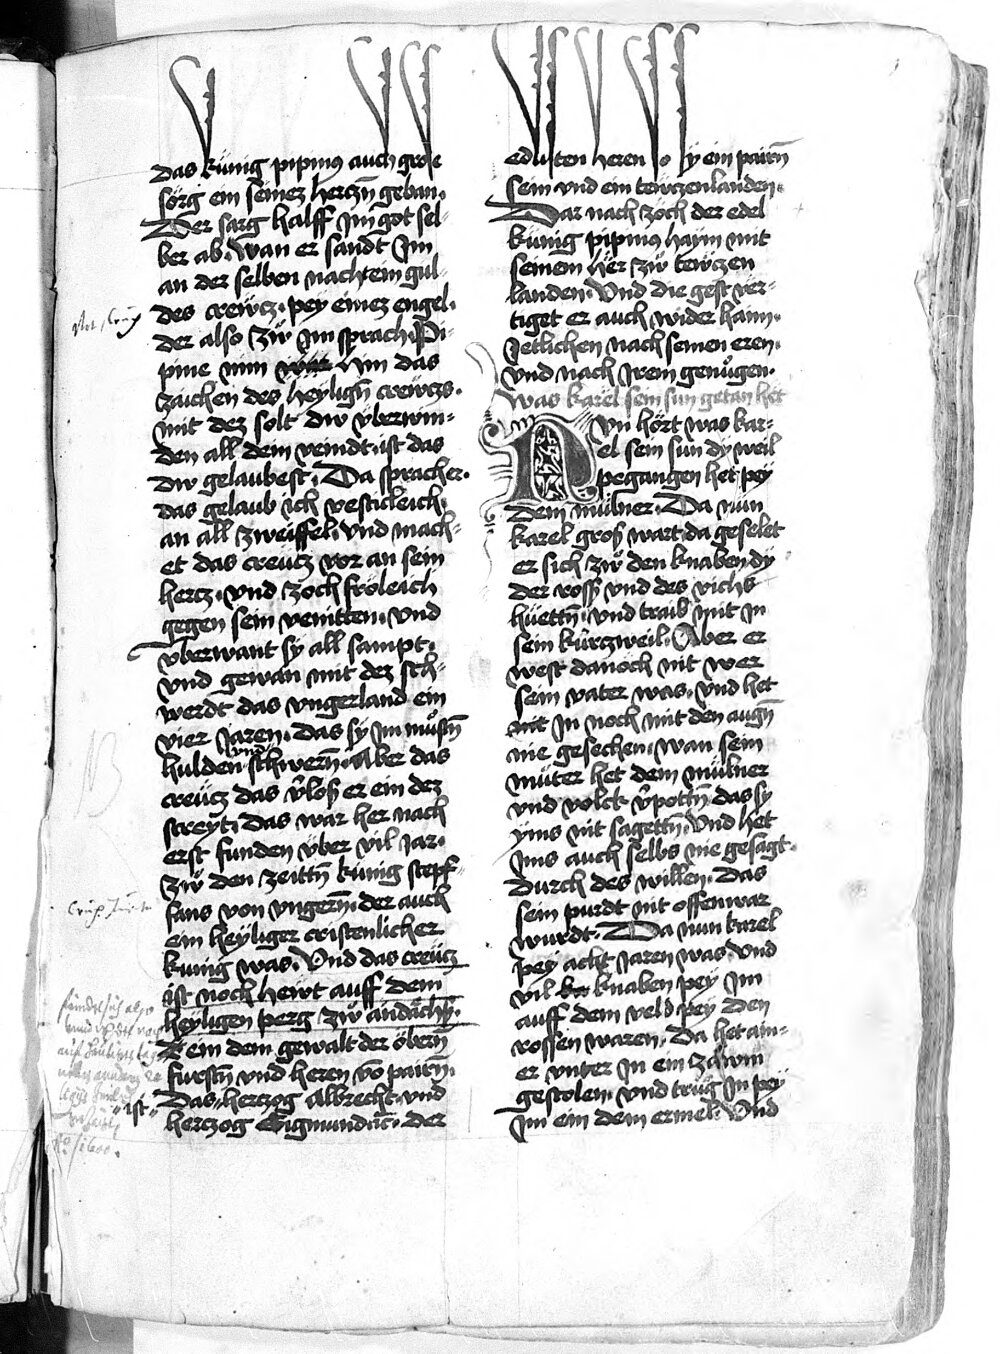 das künig pipinus auch grose
sorg ein seinez herczn̄ geban.
Der sarg halff Im got sel-
ber ab. wan er sandt Im
an der selben nacht ein gul-
des crewcz. pey einez engel.
der also zw̆ Im sprach. Pi-
pine nim war nim das
zaichen des heyligñ crewczs.
mit dez solt dw vberwin-
den all dein veindt. ist das
dw gelaubest. Da sprach er.
das gelaub ich vesticleich.
an all zweiffel. vnd mach-
et das creucz vor an sein
hercz. vnd zoch fröleich
gegen sein veintten. vnd
vberwant sy all sampt.
vnd gewan mit dez sch-
werdt das vngerland ein
vier Jaren. das sy Im mustñ
hulden vnd schwerñ. Aber das
creucz das v̆los er ein dez
streyt. das war her nach
erst funden vber vil Jar.
zw̆ den zeittñ künig stepf-
fans von vngerñ. der auch
ein heyliger cristenlicher
kunig was. Vnd das creucz
ist noch hewt auff dem
heyligen perg zw̆ andächs.
ein dem gewalt der öberñ
furstñ vnd heren võ pairñ.
Das herczog Albrecht vnd
"ist"
herczog Sigmund ist. der
edlisten heren so sy ein pairñ
sein vnd ein tewczenlanden.
Dar nach zoch der edel
künig pipinus haym mit
seinem her zw̆ tewczen
landen. Vnd die gest ver-
tiget er auch wider haim.
Jetlichen nach seinen eren.
vnd nach Irem genügen.
Was karel sein sun getan het
Nvn hört was kar-
el sein sun dy weil
pegangen het pey
dem mülner. Da nun
karel gros wart. da geselet
er sich zw̆ den knaben dy
der ross vnd des vichs
hüettñ. vnd traib mit In
sein kürzweil. Aber er
west danoch nit wer
sein vater was. vnd het
mit In noch mit den augñ
nie gesechen. wan sein
müter het dem mülner
vnd volck v̆potñ das sy
yms nit sagettñ. Vnd het
Ims auch selbs nie gesagt.
durch des willen. Das
sein purdt nit offenwar
wurdt. Da nun karel
pey acht Jaren was. Vnd
vil knaben pey Im
auff dem veld pey den
rossen waren. Da het ain-
er vnter In ein zäwm
gestolen. vnd trug In pey
Im ein dem ermel. Vnd